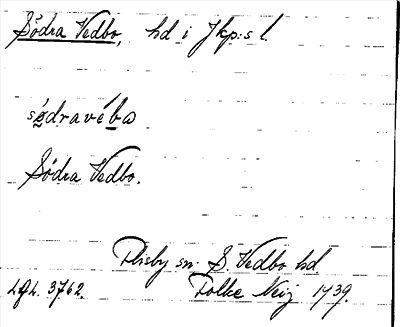 Södra Vedbo, hd i Jkp:s l.
sǿdravéba
Södra Vedbo.
Flisby sn. S. Vedbo hd
Lgl. 3762. Folke Neij 1939.